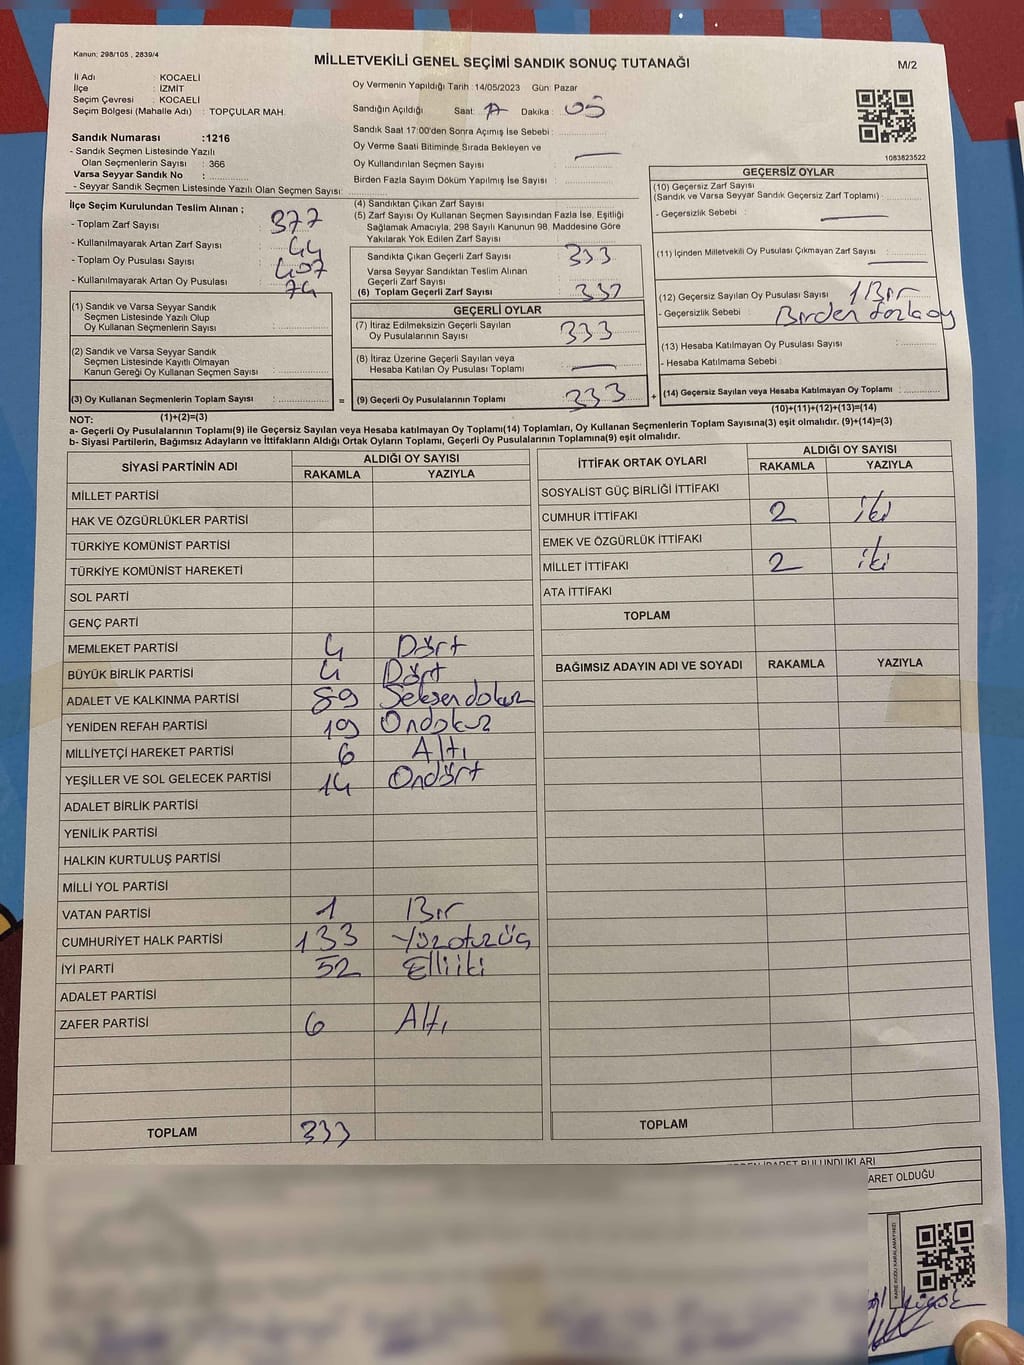 Kanun: 298/105 , 2839/4
MİLLETVEKİLİ GENEL SEÇİMİ SANDIK SONUÇ TUTANAĞI
M/2
İl Adı : KOCAELİ
İlçe : İZMİT
Seçim Çevresi : KOCAELİ
Seçim Bölgesi (Mahalle Adı) : TOPÇULAR MAH.
Sandık Numarası :1216
- Sandık Seçmen Listesinde Yazılı
Olan Seçmenlerin Sayısı : 366
Varsa Seyyar Sandık No :
- Seyyar Sandık Seçmen Listesinde Yazılı Olan Seçmen Sayısı:
Oy Vermenin Yapıldığı Tarih : 14/05/2023 Gün: Pazar
Sandığın Açıldığı Saat: Dakika : 05
Sandık Saat 17:00'den Sonra Açımış İse Sebebi :
Oy Verme Saati Bitiminde Sırada Bekleyen ve
Oy Kullandırılan Seçmen Sayısı :
Birden Fazla Sayım Döküm Yapılmış İse Sayısı :
1083823522
İlçe Seçim Kurulundan Teslim Alınan ;
- Toplam Zarf Sayısı : 377
- Kullanılmayarak Artan Zarf Sayısı : 44
- Toplam Oy Pusulası Sayısı : 407
- Kullanılmayarak Artan Oy Pusulası : 74
(1) Sandık ve Varsa Seyyar Sandık
Seçmen Listesinde Yazılı Olup
Oy Kullanan Seçmenlerin Sayısı :
(2) Sandık ve Varsa Seyyar Sandık
Seçmen Listesinde Kayıtlı Olmayan
Kanun Gereği Oy Kullanan Seçmen Sayısı :
(3) Oy Kullanan Seçmenlerin Toplam Sayısı :
(1)+(2)=(3)
(4) Sandıktan Çıkan Zarf Sayısı :
(5) Zarf Sayısı Oy Kullanan Seçmen Sayısından Fazla İse, Eşitliği
Sağlamak Amacıyla, 298 Sayılı Kanunun 98. Maddesine Göre
Yakılarak Yok Edilen Zarf Sayısı :
Sandıkta Çıkan Geçerli Zarf Sayısı : 333
Varsa Seyyar Sandıktan Teslim Alınan
Geçerli Zarf Sayısı :
(6) Toplam Geçerli Zarf Sayısı : 333
GEÇERLİ OYLAR
(7) İtiraz Edilmeksizin Geçerli Sayılan
Oy Pusulalarının Sayısı : 333
(8) İtiraz Üzerine Geçerli Sayılan veya
Hesaba Katılan Oy Pusulası Toplamı :
= (9) Geçerli Oy Pusulalarının Toplamı : 333 +
GEÇERSİZ OYLAR
(10) Geçersiz Zarf Sayısı
(Sandık ve Varsa Seyyar Sandık Geçersiz Zarf Toplamı) :
- Geçersizlik Sebebi :
(11) İçinden Milletvekili Oy Pusulası Çıkmayan Zarf Sayısı :
(12) Geçersiz Sayılan Oy Pusulası Sayısı : 1 Bir
- Geçersizlik Sebebi : Birden fazla oy
(13) Hesaba Katılmayan Oy Pusulası Sayısı :
- Hesaba Katılmama Sebebi :
(14) Geçersiz Sayılan veya Hesaba Katılmayan Oy Toplamı :
(10)+(11)+(12)+(13)=(14)
NOT:
a- Geçerli Oy Pusulalarının Toplamı(9) ile Geçersiz Sayılan veya Hesaba katılmayan Oy Toplamı(14) Toplamları, Oy Kullanan Seçmenlerin Toplam Sayısına(3) eşit olmalıdır. (9)+(14)=(3)
b- Siyasi Partilerin, Bağımsız Adayların ve İttifakların Aldığı Ortak Oyların Toplamı, Geçerli Oy Pusulalarının Toplamına(9) eşit olmalıdır.
SİYASİ PARTİNİN ADI ALDIĞI OY SAYISI
RAKAMLA YAZIYLA
MİLLET PARTİSİ
HAK VE ÖZGÜRLÜKLER PARTİSİ
TÜRKİYE KOMÜNİST PARTİSİ
TÜRKİYE KOMÜNİST HAREKETİ
SOL PARTİ
GENÇ PARTİ
MEMLEKET PARTİSİ 4 Dört
BÜYÜK BİRLİK PARTİSİ 4 Dört
ADALET VE KALKINMA PARTİSİ 89 Seksendokuz
YENİDEN REFAH PARTİSİ 19 Ondokuz
MİLLİYETÇİ HAREKET PARTİSİ 6 Altı
YEŞİLLER VE SOL GELECEK PARTİSİ 14 Ondört
ADALET BİRLİK PARTİSİ
YENİLİK PARTİSİ
HALKIN KURTULUŞ PARTİSİ
MİLLİ YOL PARTİSİ
VATAN PARTİSİ 1 Bir
CUMHURİYET HALK PARTİSİ 133 Yüzotuzüç
İYİ PARTİ 52 Elliiki
ADALET PARTİSİ
ZAFER PARTİSİ 6 Altı
TOPLAM 333
İTTİFAK ORTAK OYLARI ALDIĞI OY SAYISI
RAKAMLA YAZIYLA
SOSYALİST GÜÇ BİRLİĞİ İTTİFAKI
CUMHUR İTTİFAKI 2 iki
EMEK VE ÖZGÜRLÜK İTTİFAKI
MİLLET İTTİFAKI 2 iki
ATA İTTİFAKI
TOPLAM
BAĞIMSIZ ADAYIN ADI VE SOYADI RAKAMLA YAZIYLA
TOPLAM
BULUNDUKLARI
ARET OLDUĞU